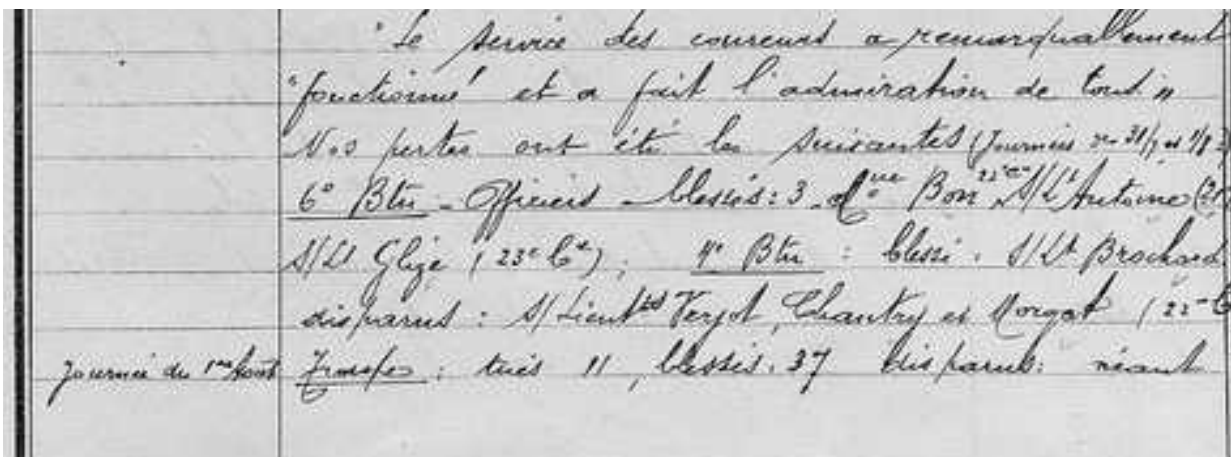 "Le service des coureurs a remarquablement
"fonctionné et a fait l'admiration de tous"
Nos pertes ont été les suivantes (Journées du 31/7 et 1/8
6e Btn - Officiers - blessés: 3. Bon 22e S/Lt Antoine
S/Lt Glize (23e Cie); 4e Btn : blessé : S/Lt Brochard
disparus : S/Lieutts Verjot, Chantry et Morgat (22e C
Journée du 1er Août Troupe : tués 11, blessés : 37 disparus : néant